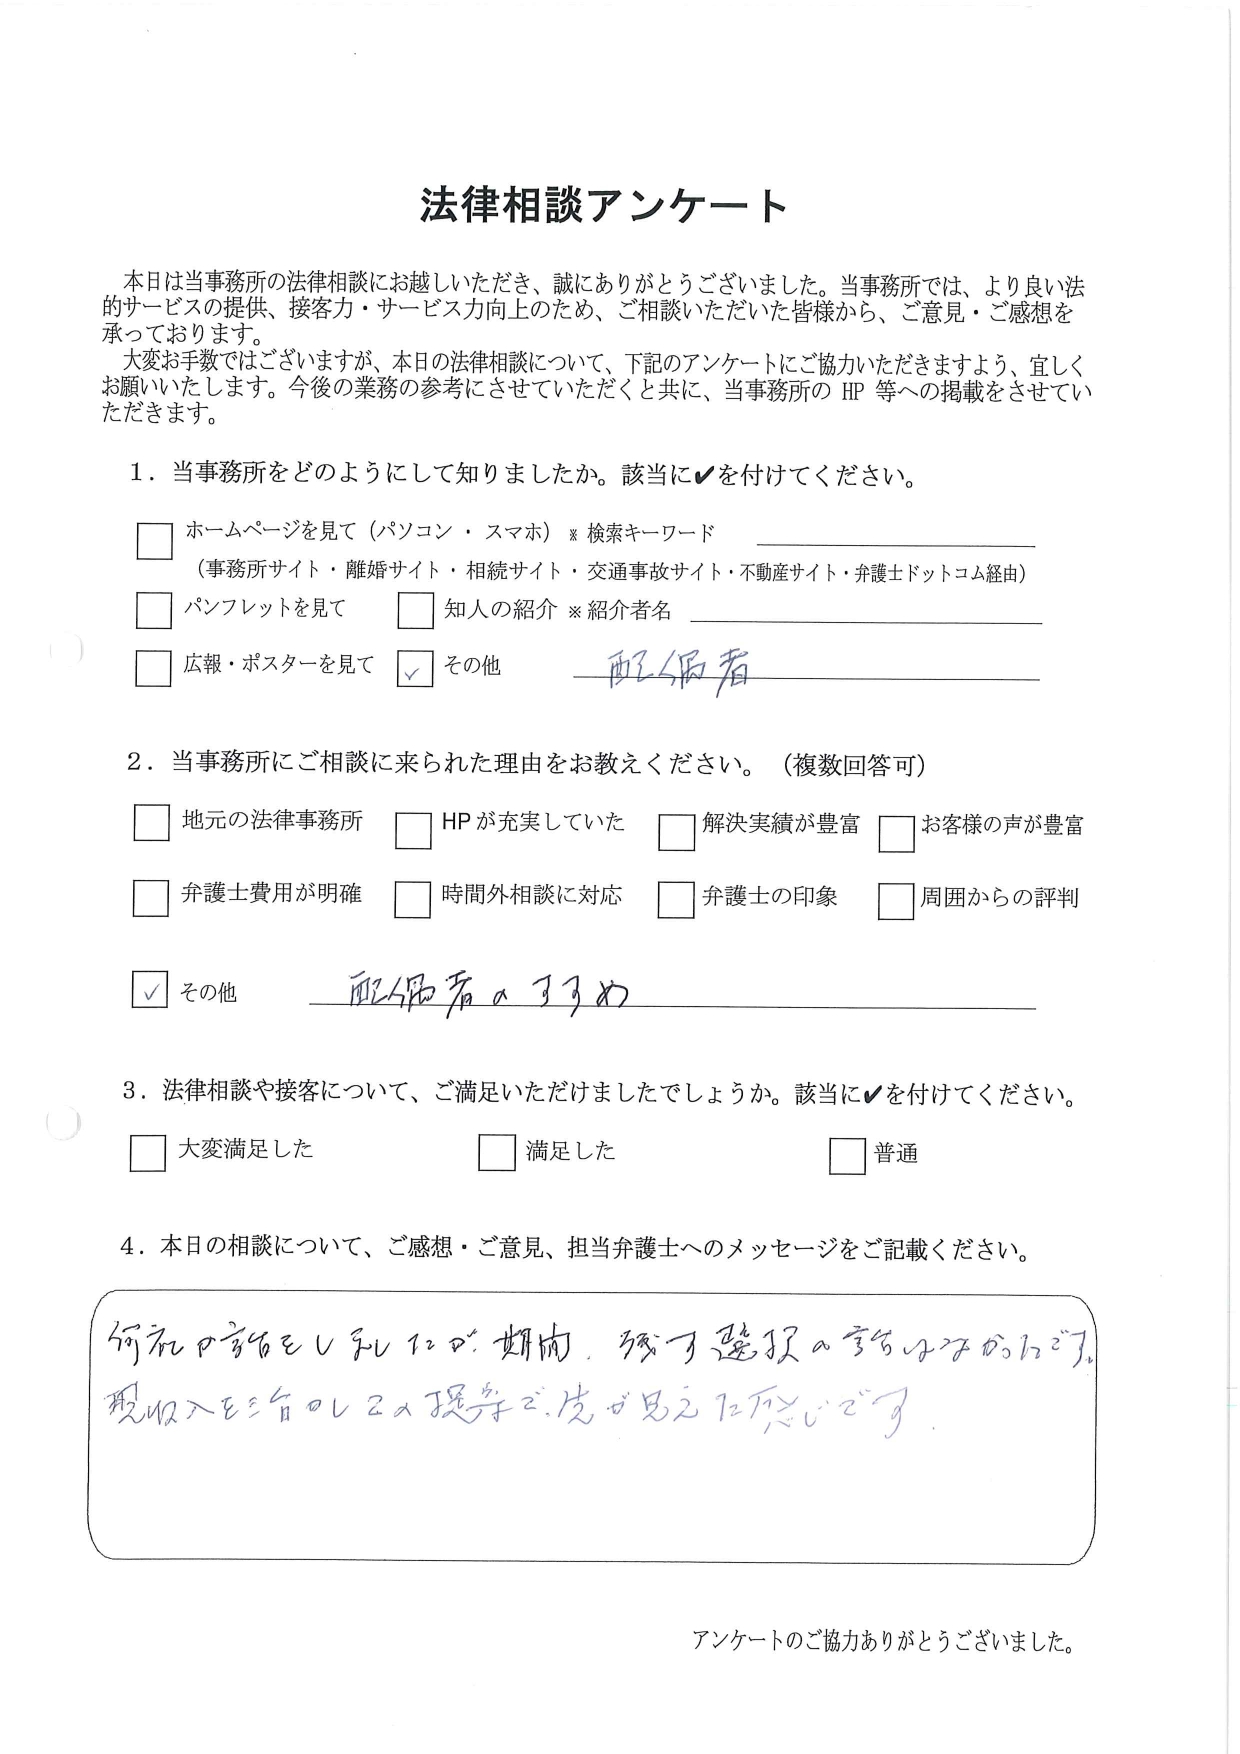 法律相談アンケート
本日は当事務所の法律相談にお越しいただき、誠にありがとうございました。当事務所では、より良い法
的サービスの提供、接客力・サービス力向上のため、ご相談いただいた皆様から、ご意見・ご感想を
承っております。
大変お手数ではございますが、本日の法律相談について、下記のアンケートにご協力いただきますよう、宜しく
お願いいたします。今後の業務の参考にさせていただくと共に、当事務所の HP 等への掲載をさせてい
ただきます。
1．当事務所をどのようにして知りましたか。該当に✔を付けてください。
ホームページを見て（パソコン ・ スマホ）※ 検索キーワード
（事務所サイト・離婚サイト・相続サイト・交通事故サイト・不動産サイト・弁護士ドットコム経由）
パンフレットを見て 知人の紹介 ※紹介者名
広報・ポスターを見て ✓ その他 配偶者
2．当事務所にご相談に来られた理由をお教えください。（複数回答可）
地元の法律事務所 HPが充実していた 解決実績が豊富 お客様の声が豊富
弁護士費用が明確 時間外相談に対応 弁護士の印象 周囲からの評判
✓ その他 配偶者のすすめ
3．法律相談や接客について、ご満足いただけましたでしょうか。該当に✔を付けてください。
大変満足した 満足した 普通
4．本日の相談について、ご感想・ご意見、担当弁護士へのメッセージをご記載ください。
何社か しましたが 期間、残す選択の はなかったです。
現収入を の 先が見えた感じです
アンケートのご協力ありがとうございました。